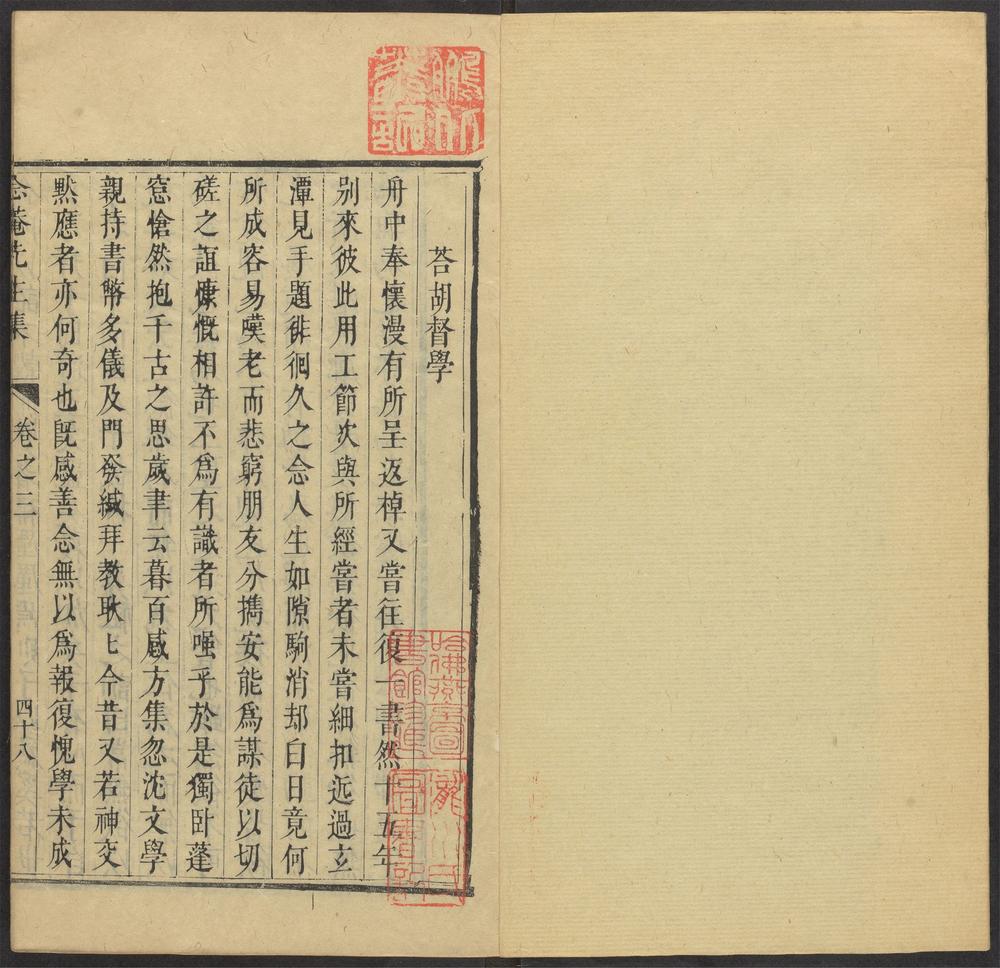 荅胡督學
舟中奉懷漫有所呈返棹又嘗往復一書然十五年
別來彼此用工節次與所經嘗者未嘗細扣近過玄
潭見手題徘徊久之念人生如隙駒消却白日竟何
所成容易嘆老而悲窮朋友分携安能爲謀徒以切
磋之誼慷慨相許不爲有識者所嗤乎於是獨卧蓬
窓愴然抱千古之思歲聿云暮百感方集忽沈文學
親持書幣多儀及門發緘拜教耿匕今昔又若神交
默應者亦何奇也旣感善念無以爲報復愧學未成
念菴先生集
卷之三
四十八